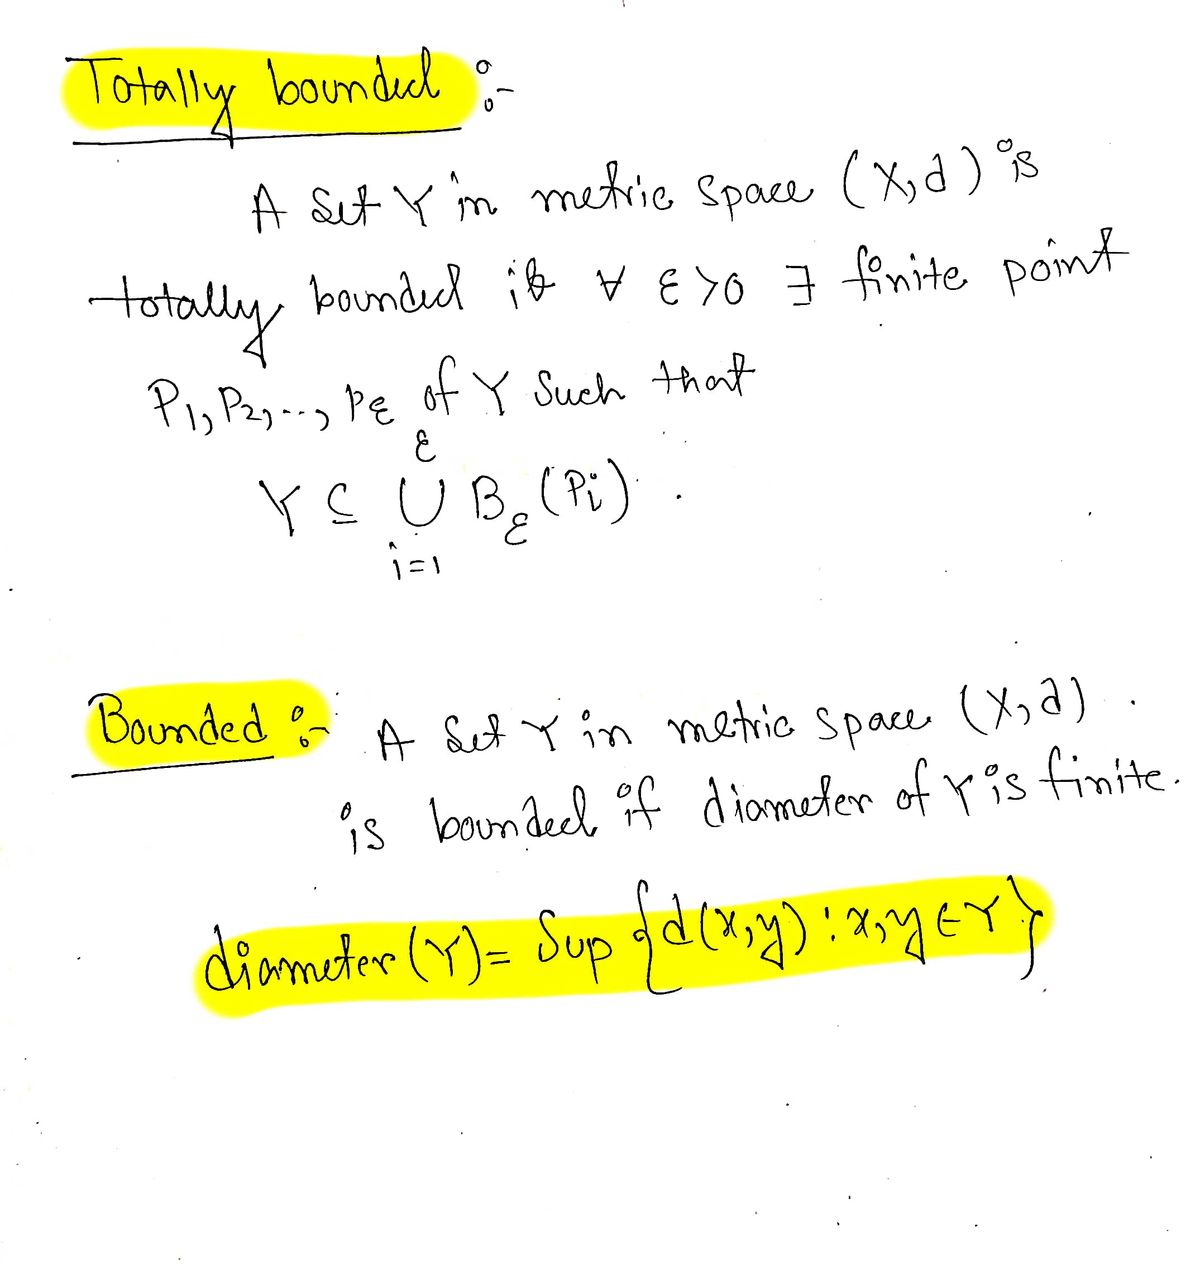 Totally bounded :-
A set Y in metric space (X,d) is
totally bounded if ∀ ε>0 ∃ finite point
P1, P2, .., Pε of Y such that
Y ⊆ ε∪i=1 Bε(Pi).
Bounded :- A set Y in metric space (X,d)
is bounded if diameter of Y is finite.
diameter(Y) = Sup {d(x,y) : x,y ∈ Y}